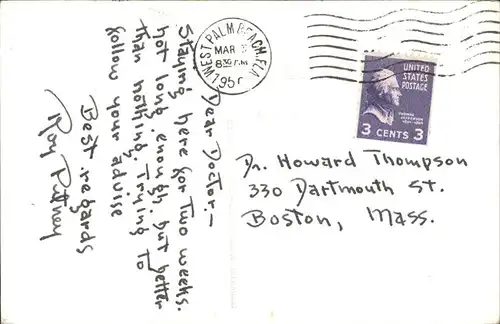 WEST PALM BEACH, FLA.
MAR
8 30 P.M.
UNITED
STATES
POSTAGE
THOMAS
JEFFERSON
3 CENTS 3
Dear Doctor:—
Staying here for two weeks.
Not long enough, but better
than nothing. Trying to
follow your advise
Best regards
Roy
Dr. Howard Thompson
330 Dartmouth St.
Boston, Mass.